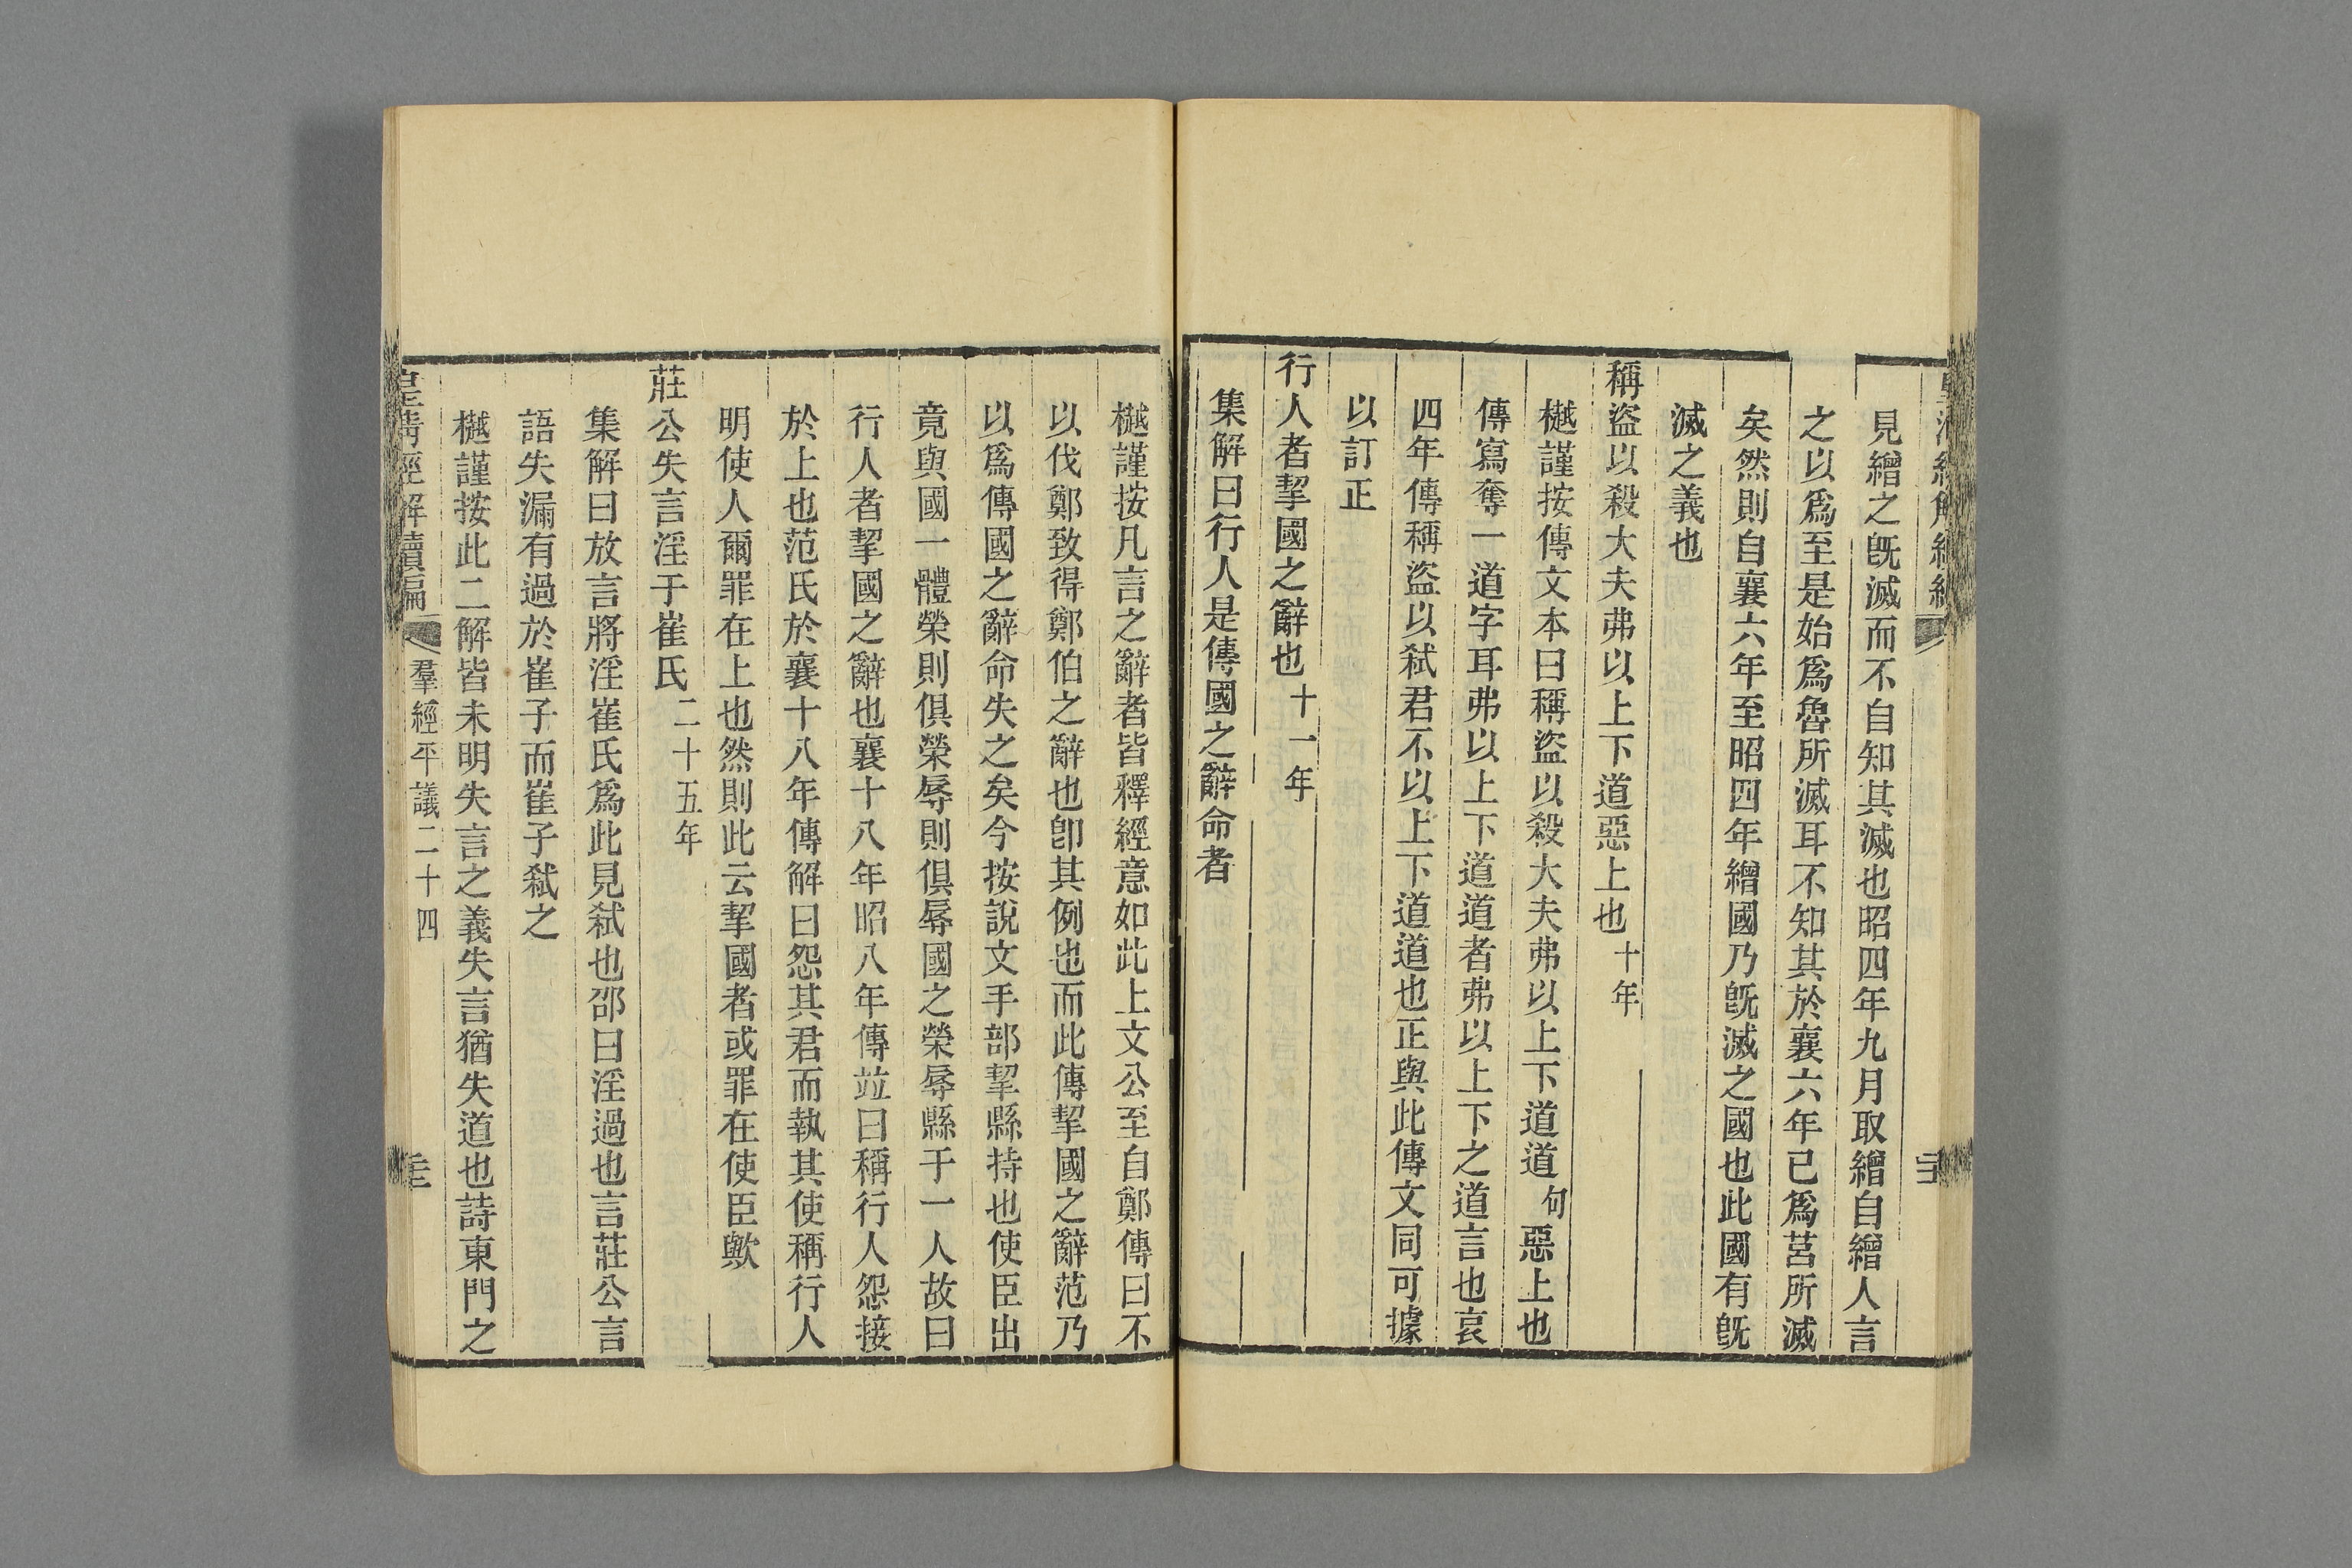 見繒之旣滅而不自知其滅也昭四年九月取繒自繒人言
之以爲至是始爲魯所滅耳不知其於襄六年已爲莒所滅
矣然則自襄六年至昭四年繒國乃旣滅之國也此國有旣
滅之義也
稱盜以殺大夫弗以上下道惡上也十年
樾謹按傳文本曰稱盜以殺大夫弗以上下道道句惡上也
傳寫奪一道字耳弗以上下道道者弗以上下之道言也哀
四年傳稱盜以弑君不以上下道道也正與此傳文同可據
以訂正
行人者挈國之辭也十一年
集解曰行人是傳國之辭命者
樾謹按凡言之辭者皆釋經意如此上文公至自鄭傳曰不
以伐鄭致得鄭伯之辭也卽其例也而此傳挈國之辭范乃
以爲傳國之辭命失之矣今按說文手部挈縣持也使臣出
竟與國一體榮則俱榮辱則俱辱國之榮辱縣于一人故曰
行人者挈國之辭也襄十八年昭八年傳竝曰稱行人怨接
於上也范氏於襄十八年傳解曰怨其君而執其使稱行人
明使人爾罪在上也然則此云挈國者或罪在使臣歟
莊公失言淫于崔氏二十五年
集解曰放言將淫崔氏爲此見弑也邵曰淫過也言莊公言
語失漏有過於崔子而崔子弑之
樾謹按此二解皆未明失言之義失言猶失道也詩東門之
皇淸經解續編 羣經平議二十四